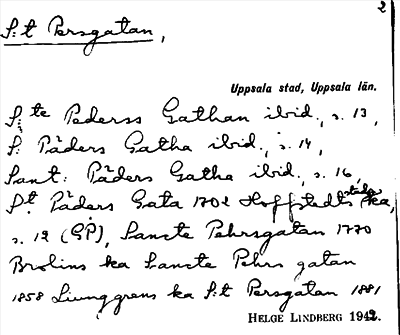 2
S:t Persgatan,
Uppsala stad, Uppsala län.
S:te Pederss Gathan ibid., s. 13,
S: Päders Gatha ibid., s. 14,
Sant: Päders Gatha ibid., s. 16,
St Päders Gata 1702 Hoffstedts stadska,
s. 12 (GP), Sancte Pehrsgatan 1770
Brolins ka Sancte Pehrs gatan
1858 Ljunggrens ka S:t Persgatan 1881
HELGE LINDBERG 1942.